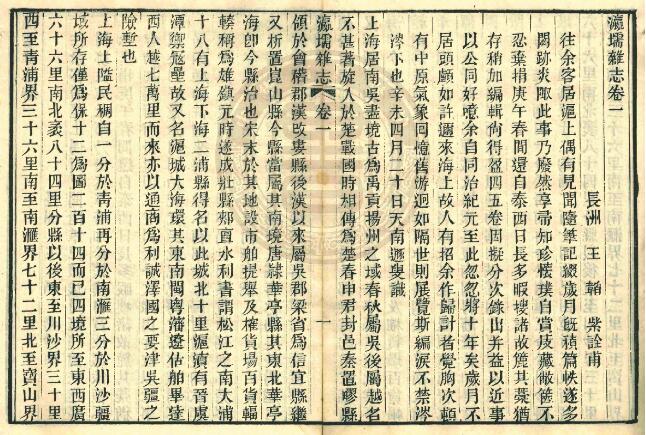 瀛壖雜志卷一
長洲 王韜 紫詮甫
往余客居滬上偶有見聞隨筆記綴歲月旣積篇帙遂多
閱跡炎陬此事乃廢然享帚知珍懷璞自賞庋藏敝篋不
忍棄捐庚午春間還自泰西日長多暇搜諸故簏其稾猶
存稍加編輯尙得盈四五卷因擬分次錄出幷益以近事
以公同好噫余自同治紀元至此忽忽將十年矣歲月不
居頭顱如許邇來海上故人有招余作歸計者覺胸次頓
有中原氣象回憶舊游迥如隔世則展覽斯編淚不禁涔
涔下也辛未四月二十日天南遯叟識
上海居南吳盡境古爲禹貢揚州之域春秋屬吳後屬越名
不甚著旋入於楚戰國時相傳爲楚春申君封邑秦置疁縣
瀛壖雜志 卷一 一
領於會稽郡漢改婁縣後漢以來屬吳郡梁省爲信宜縣繼
又析置崑山縣今縣當屬其南境唐隸華亭縣其東北華亭
海卽今縣治也宋末於其地設市舶提舉及榷貨場百貨輻
輳稱爲雄鎭元時遂成壯縣郟亶水利書謂松江之南大浦
十八有上海下海二浦縣得名以此城北十里滬瀆有晉虞
潭禦寇壘故又名滬城大海環其東南閩粤瀋遼估舶畢達
西人越七萬里而來亦以通商爲利誠澤國之要津吳疆之
險塹也
上海土隘民稠自一分於青浦再分於南滙三分於川沙疆
域所存僅爲保十二爲圖二百十四而已四境所至東西廣
六十六里南北袤八十四里分縣以後東至川沙界三十里
西至青浦界三十六里南至南滙界七十二里北至寶山界